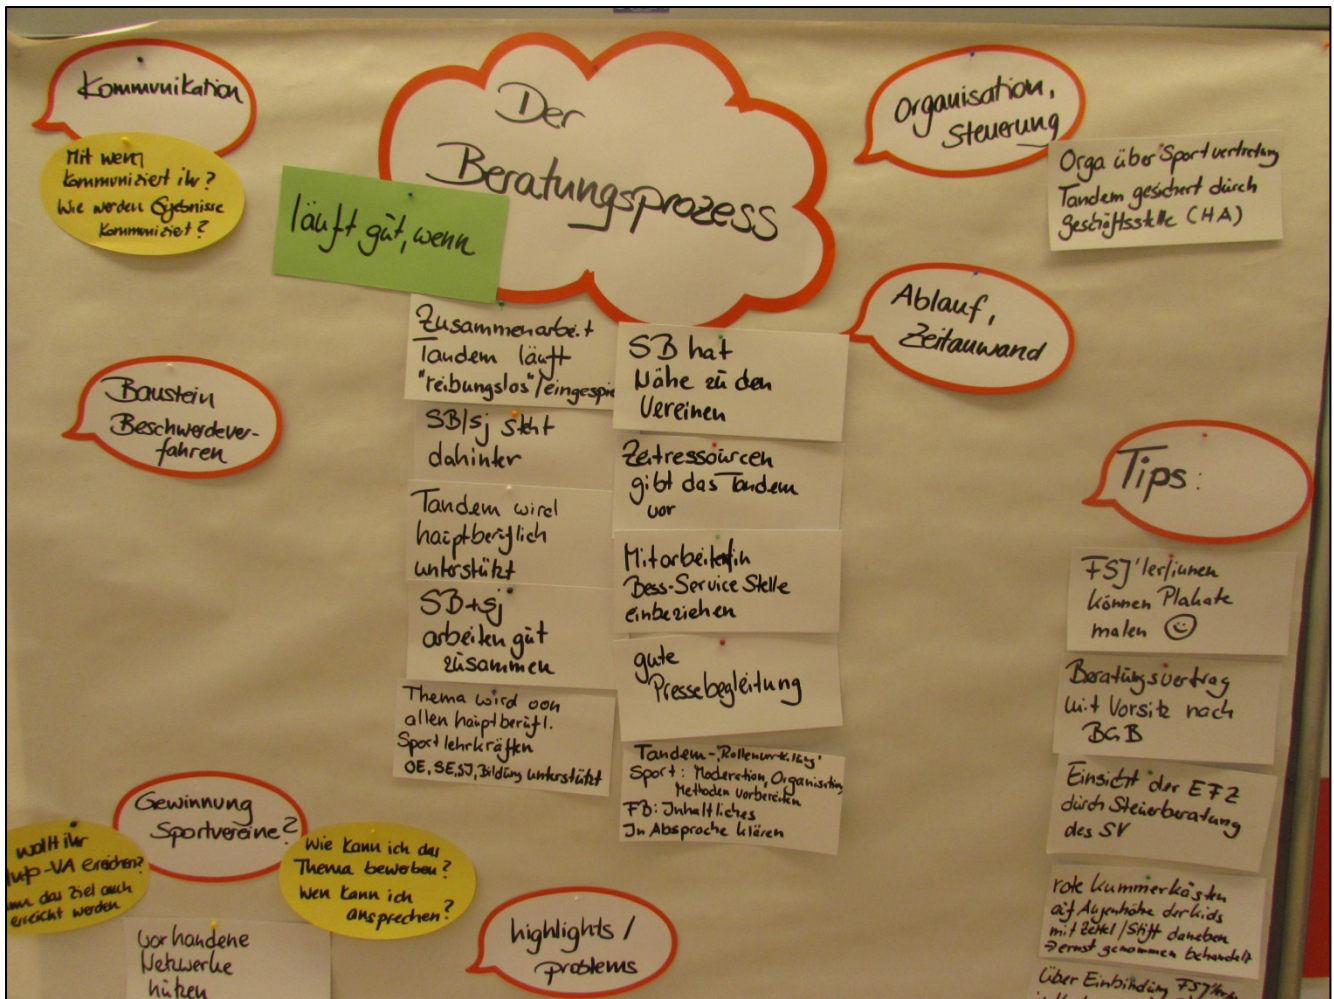 Kommunikation
Mit wem
kommuniziert ihr?
Wie werden Ergebnisse
kommuniziert?
Der
Beratungsprozess
läuft gut, wenn
Organisation,
Steuerung
Orga über Sportvertretung
Tandem gesichert durch
Geschäftsstelle (HA)
Ablauf,
Zeitauwand
Baustein
Beschwerdever-
fahren
Zusammenarbeit
Tandem läuft
"reibungslos"/eingespie
SB/sj steht
dahinter
Tandem wird
hauptberuflich
unterstützt
SB+sj
arbeiten gut
zusammen
Thema wird von
allen hauptberufl.
Sportlehrkräften
OE, SE, SJ, Bildung unterstützt
SB hat
Nähe zu den
Vereinen
Zeitressourcen
gibt das Tandem
vor
Mitarbeiter/in
Bess-Service Stelle
einbeziehen
gute
Pressebegleitung
Tandem-
Sport: Moderation, Organisation,
Methoden vorbereiten
FB: Inhaltliches
In Absprache klären
Tips:
FSJ'ler/innen
können Plakate
malen ☺
Beratungsvertrag
mit Vorsitz nach
BGB
Einsicht der EFZ
durch Steuerberatung
des SV
rote Kummerkästen
auf Augenhöhe der Kids
mit Zettel/Stift daneben
→ ernst genommen behandelt
über Einbindung
Gewinnung
Sportvereine?
wollt ihr
-VA erreichen?
das Ziel auch
erreicht werden
Wie kann ich das
Thema bewerben?
Wen kann ich
ansprechen?
vorhandene
Netzwerke
nutzen
highlights/
problems